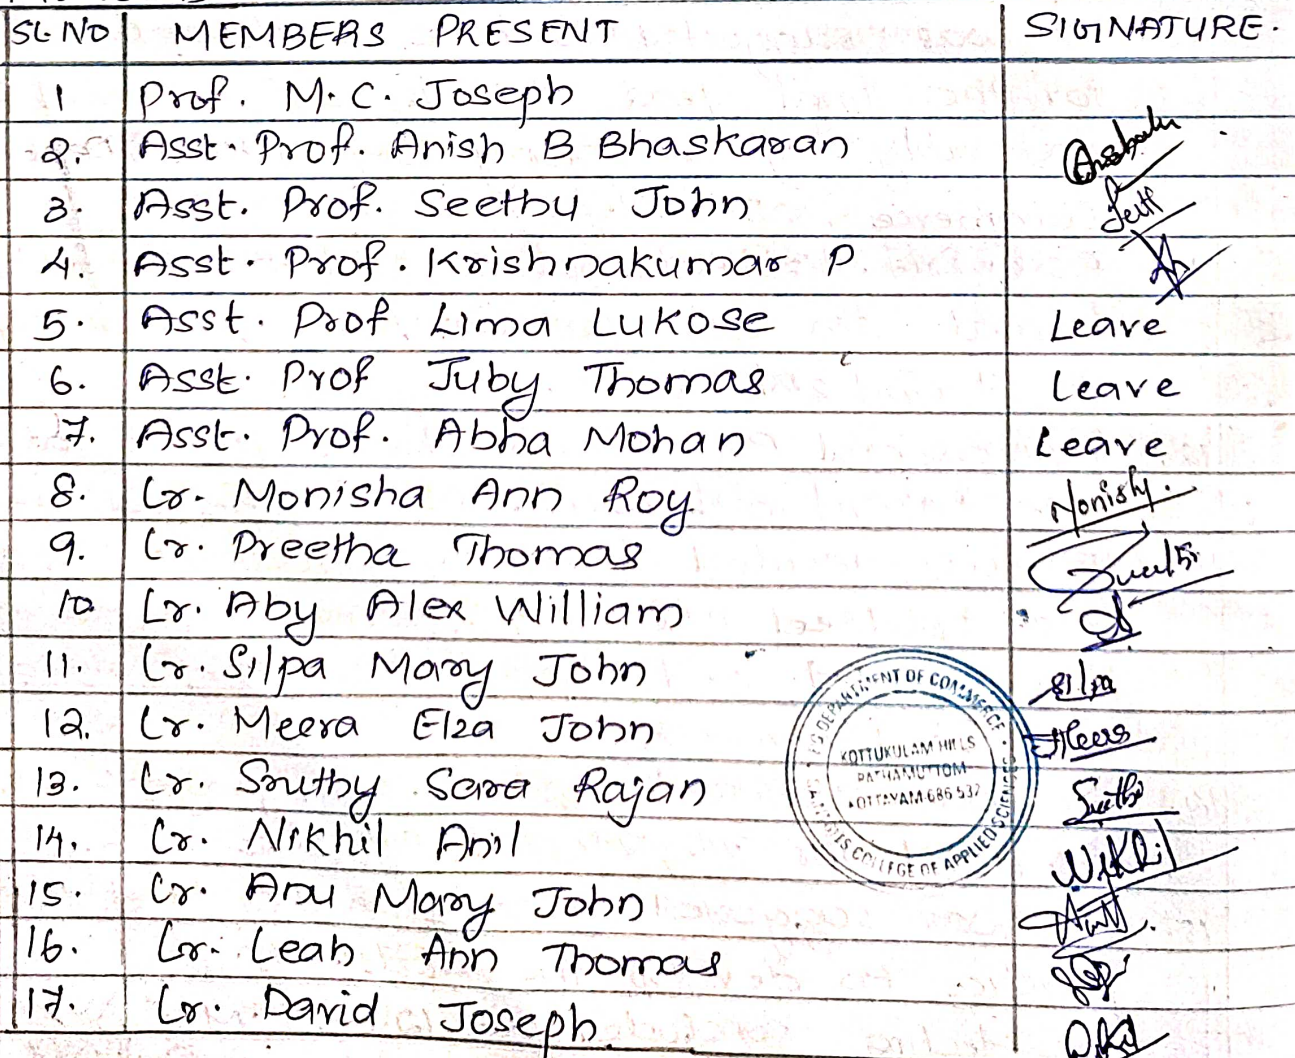 SL NO MEMBERS PRESENT SIGNATURE.
1 Prof. M. C. Joseph
2. Asst. Prof. Anish B Bhaskaran
3. Asst. Prof. Seethu John
4. Asst. Prof. Krishnakumar P
5. Asst. Prof Lima Lukose Leave
6. Asst. Prof Juby Thomas Leave
7. Asst. Prof. Abha Mohan Leave
8. Lr. Monisha Ann Roy
9. Lr. Preetha Thomas
10. Lr. Aby Alex William
11. Lr. Silpa Mary John Silpa
12. Lr. Meera Elza John Meera
13. Lr. Sruthy Sara Rajan
14. Lr. Nikhil Anil Nikhil
15. Lr. Anu Mary John
16. Lr. Leah Ann Thomas
17. Lr. David Joseph
DEPARTMENT OF COMMERCE
KOTTUKULAM HILLS
PATHAMUTTOM
KOTTAYAM-686 532
COLLEGE OF APPLIED SCIENCES